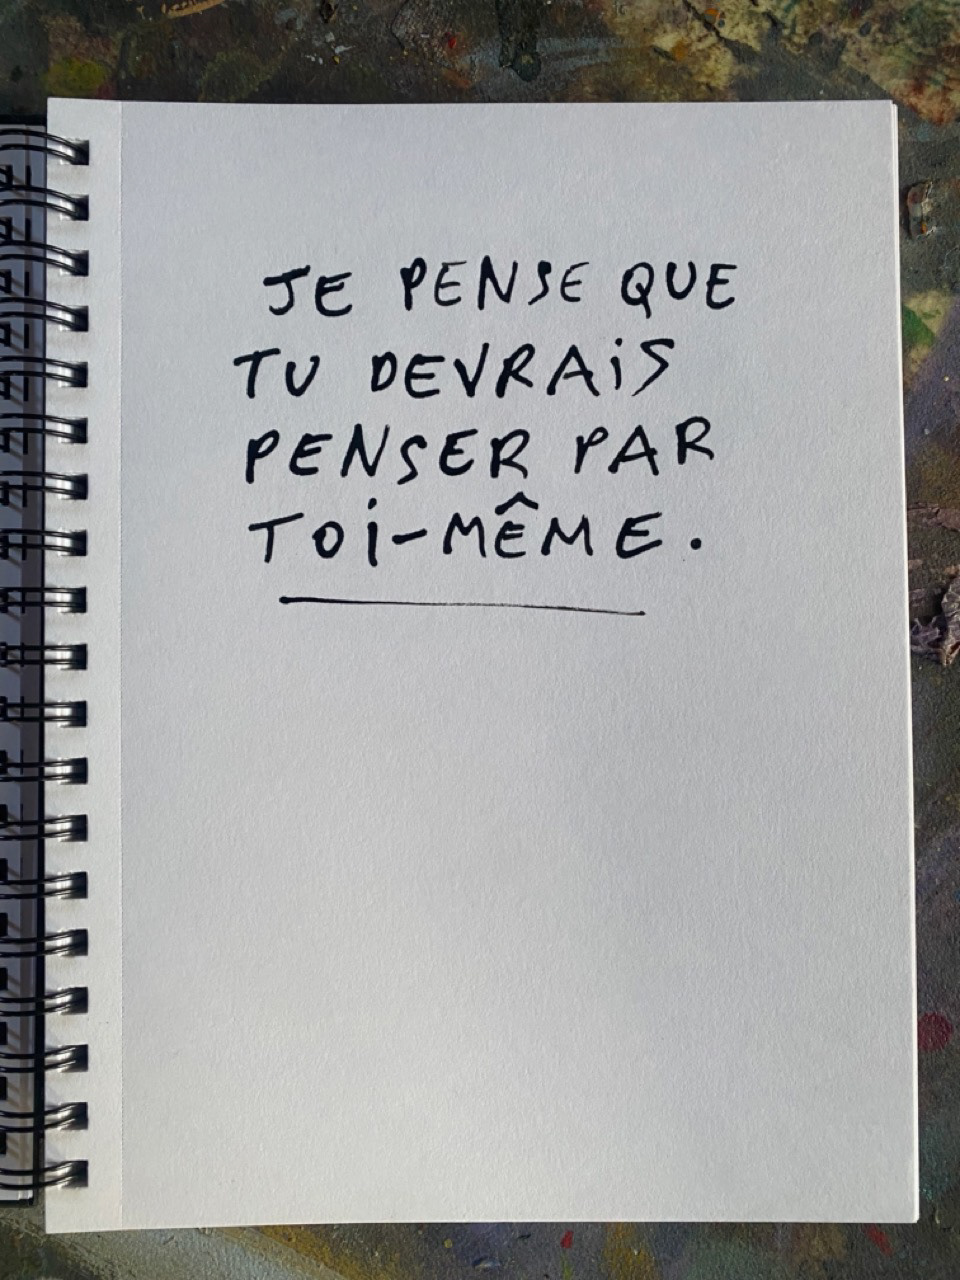 JE PENSE QUE
TU DEVRAiS
PENSER PAR
TOi-MÊME.